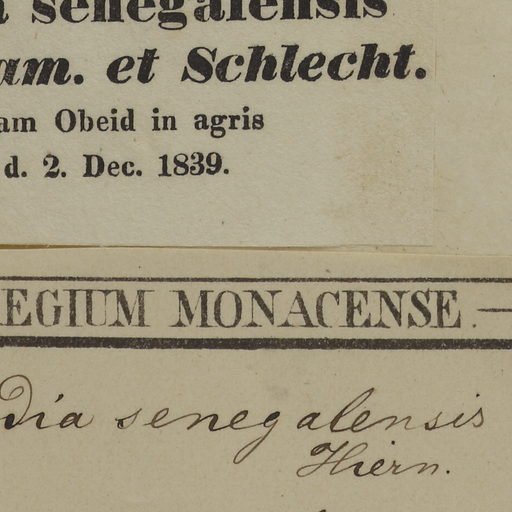 senegalensis
am. et Schlecht.
am Obeid in agris
d. 2. Dec. 1839.
EGIUM MONACENSE —
dia senegalensis
Hiern.